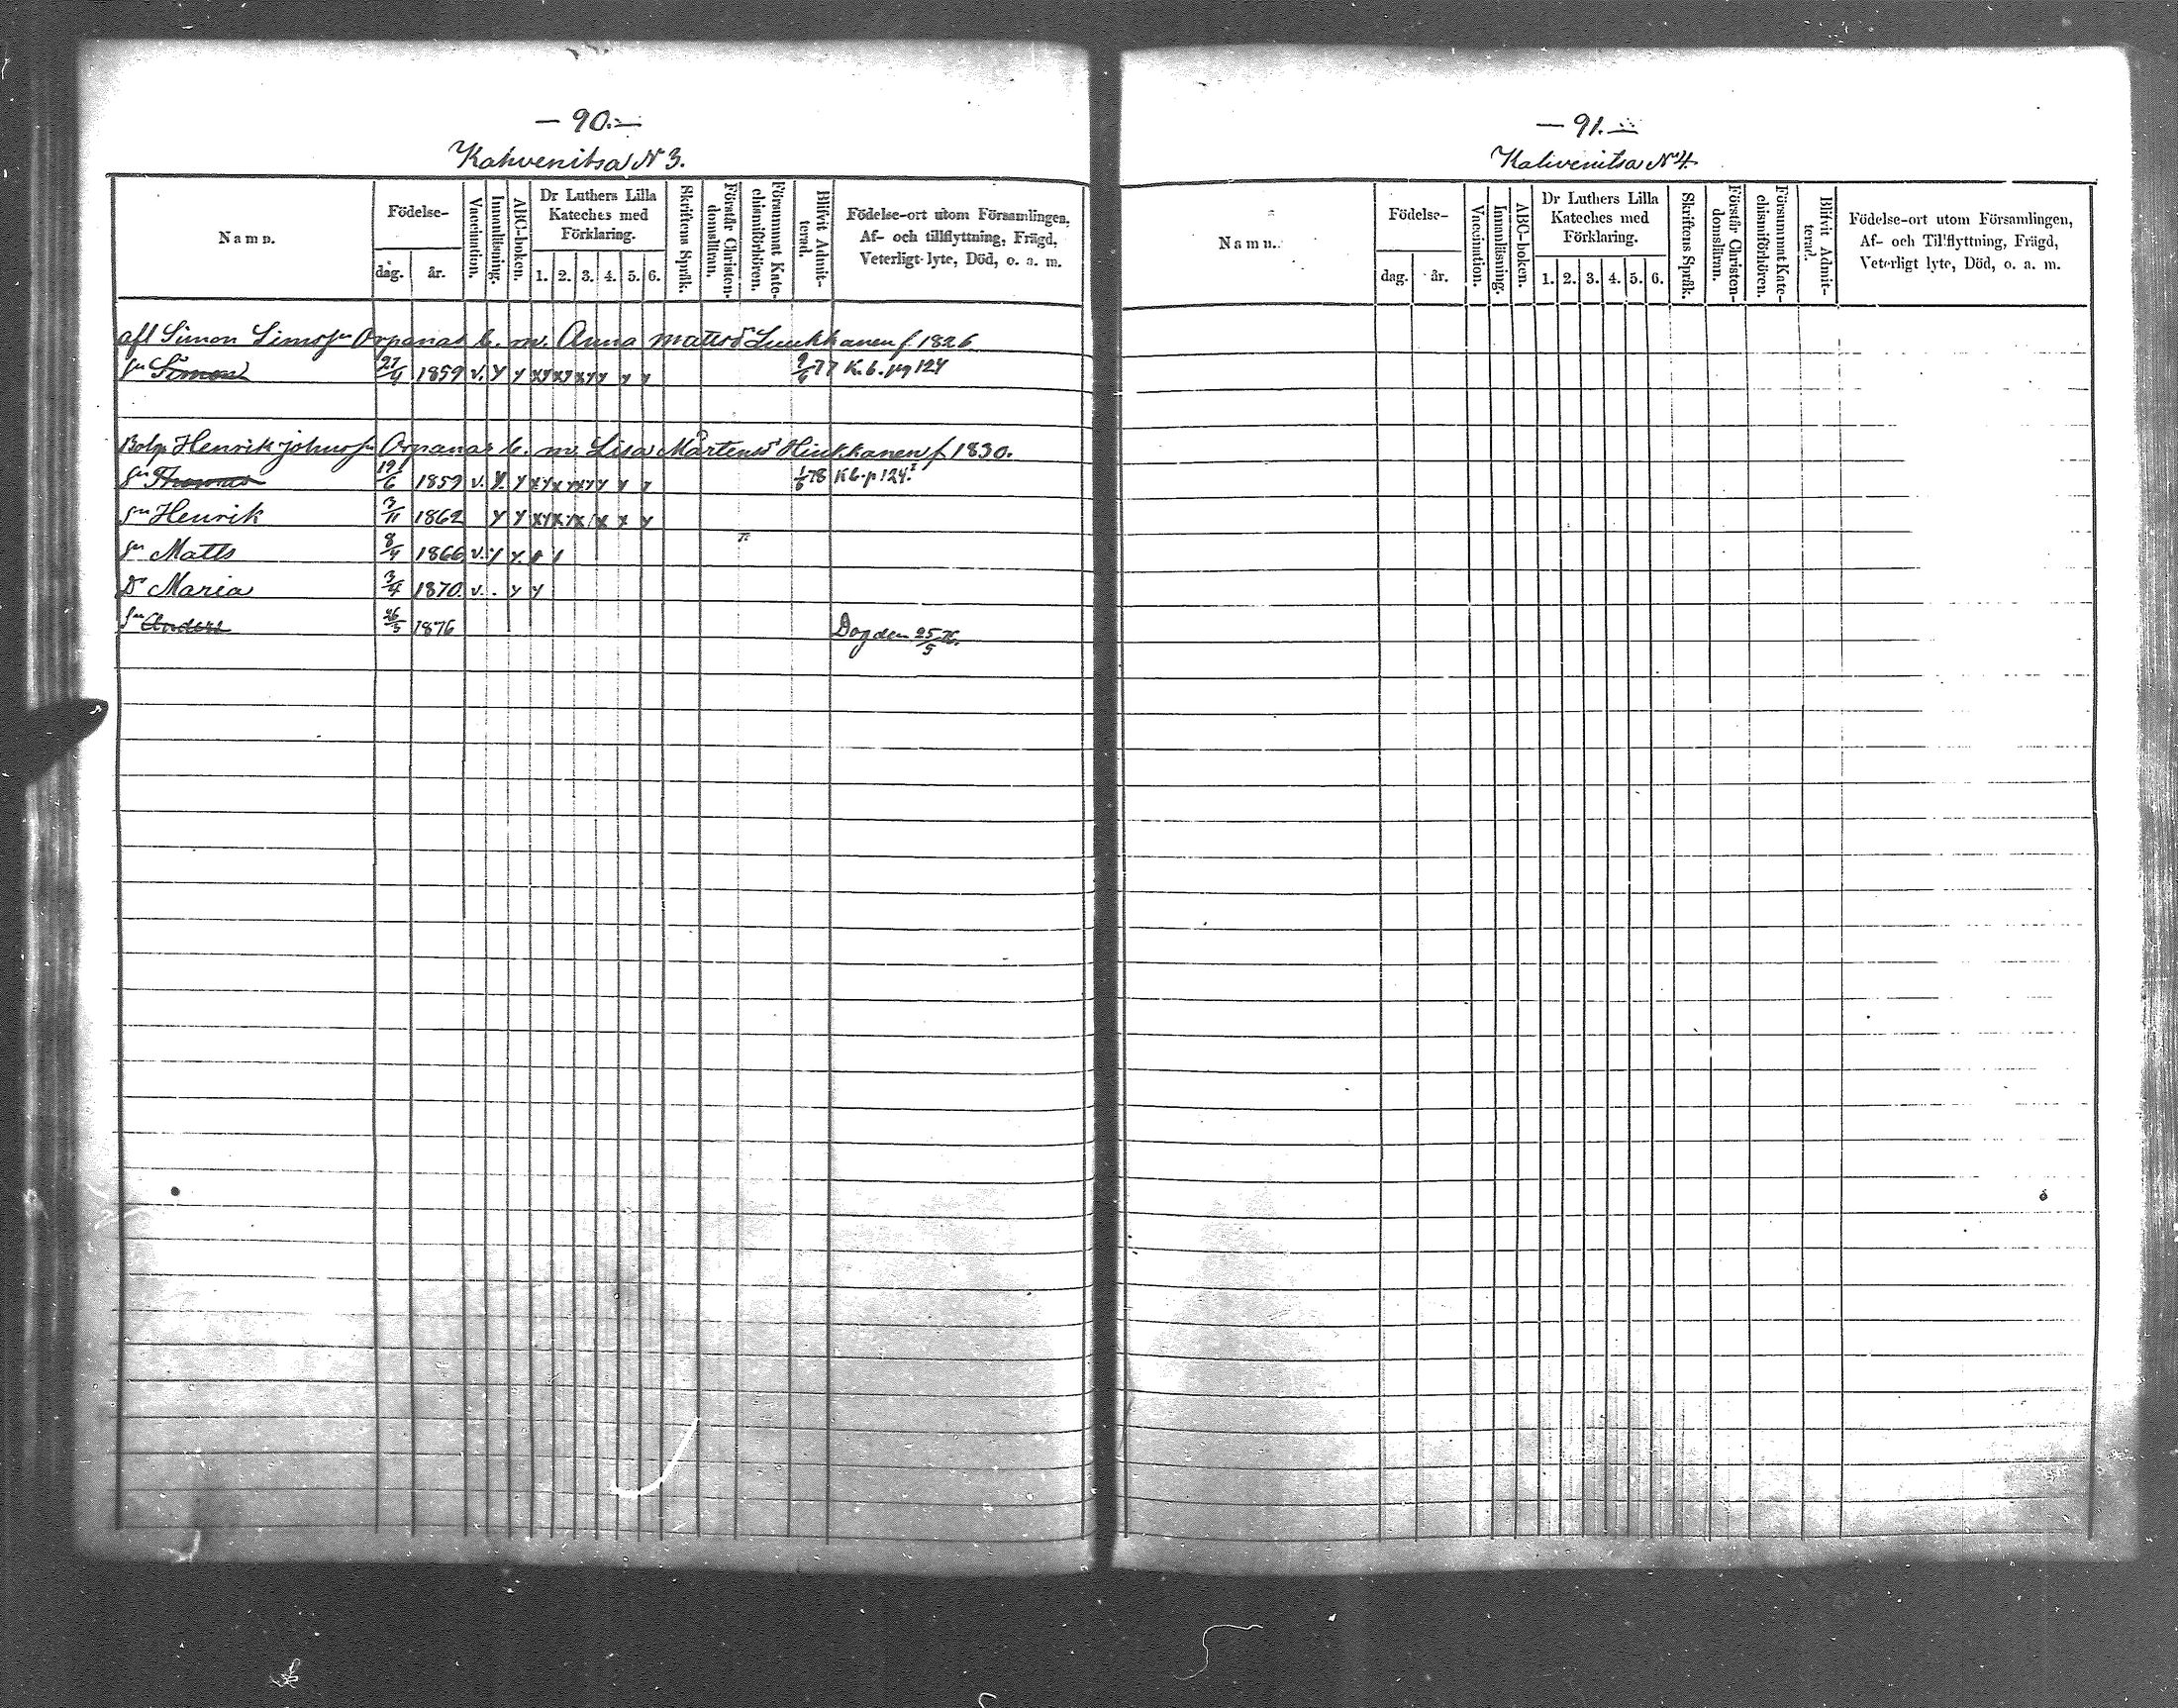 — 90. —
Kahvenitsa N 3.
Namn.
Födelse-
dag.
år.
Vaccination.
Innanläsning.
ABC-boken.
Dr Luthers Lilla
Kateches med
Förklaring.
1. 2. 3. 4. 5. 6.
Skriftens Språk.
Förstår Christen-
domsläran.
Försummat Kate-
chismiförhören.
Blifvit Admit-
terad.
Födelse-ort utom Församlingen,
Af- och tillflyttning, Frägd,
Veterligt lyte, Död, o. a. m.
afl Simon Simosn Orpanas b. m. Anna Matsd Luukkanen f 1826
Sn Simon 27/4 1859 v. y y xy xy xy y y y 9/6 77 K. b. pg 124
Bolp. Henrik Johnosn Orpanas b. m. Lisa Mårtensd Hinkkanen f 1830.
Sn Thomas 19/6 1859 v. y. y xy xy xy y y y 1/6 78 Kb. p 124.
Sn Henrik 3/11 1862 y y xy x x x x y
Sn Matts 8/4 1866 v. y y.
Dr Maria 3/4 1870. v. . y y
Sn Anders 1876 Dog den 25/5 76.
— 91. —
Kahvenitsa N 4.
Namn.
Födelse-
dag.
år.
Vaccination.
Innanläsning.
ABC-boken.
Dr Luthers Lilla
Kateches med
Förklaring.
1. 2. 3. 4. 5. 6.
Skriftens Språk.
Förstår Christen-
domsläran.
Försummat Kate-
chismiförhören.
Blifvit Admit-
terad.
Födelse-ort utom Församlingen,
Af- och Tillflyttning, Frägd,
Veterligt lyte, Död, o. a. m.